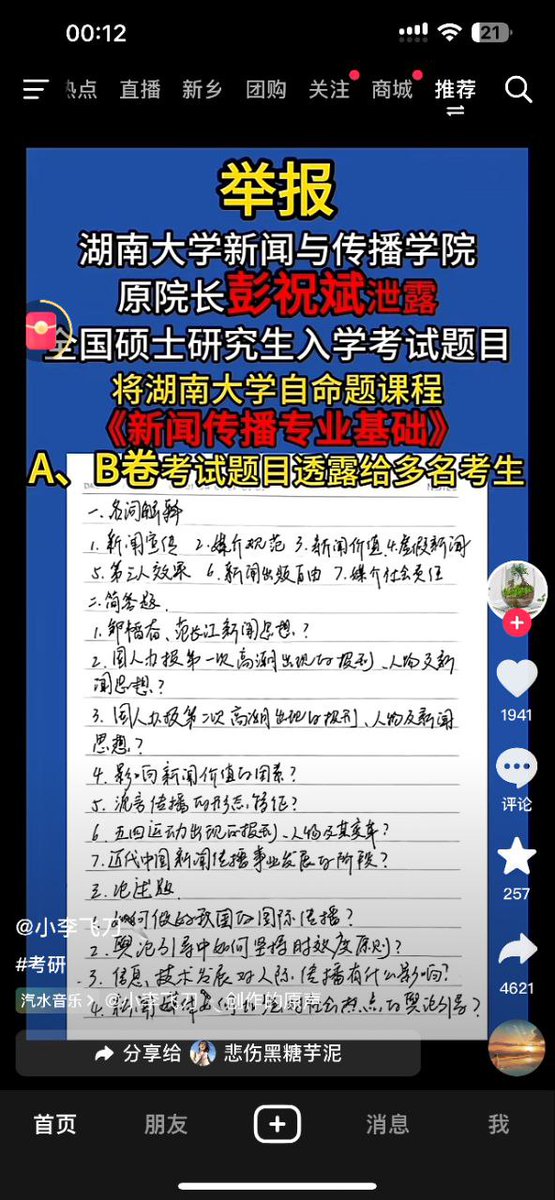 00:12
21
热点 直播 新乡 团购 关注 商城 推荐
举报
湖南大学新闻与传播学院
原院长彭祝斌泄露
全国硕士研究生入学考试题目
将湖南大学自命题课程
《新闻传播专业基础》
A、B卷考试题目透露给多名考生
一.名词解释
1.新闻宣传 2.媒介规范 3.新闻价值 4.虚假新闻
5.第三人效果 6.新闻出版自由 7.媒介社会责任
二.简答题.
1.邹韬奋、范长江新闻思想.?
2.国人办报第一次高潮出现的报刊、人物及新
闻思想.?
3.国人办报第二次高潮出现的报刊、人物及新闻
思想.?
4.影响新闻价值的因素?
5.流言传播的形态.特征?
6.五四运动出现的报刊、人物及其变革?
7.近代中国新闻传播事业发展的阶段?
三.论述题
1.如何做好我国的国际传播?
2.舆论引导中如何坚持时效度原则?
3.信息技术发展对人际传播有什么影响?
4.新闻媒体 社会热点的舆论引导?
@小李飞刀
#考研
汽水音乐 @小李飞 创作的原声
1941
评论
257
4621
分享给 悲伤黑糖芋泥
首页 朋友 消息 我